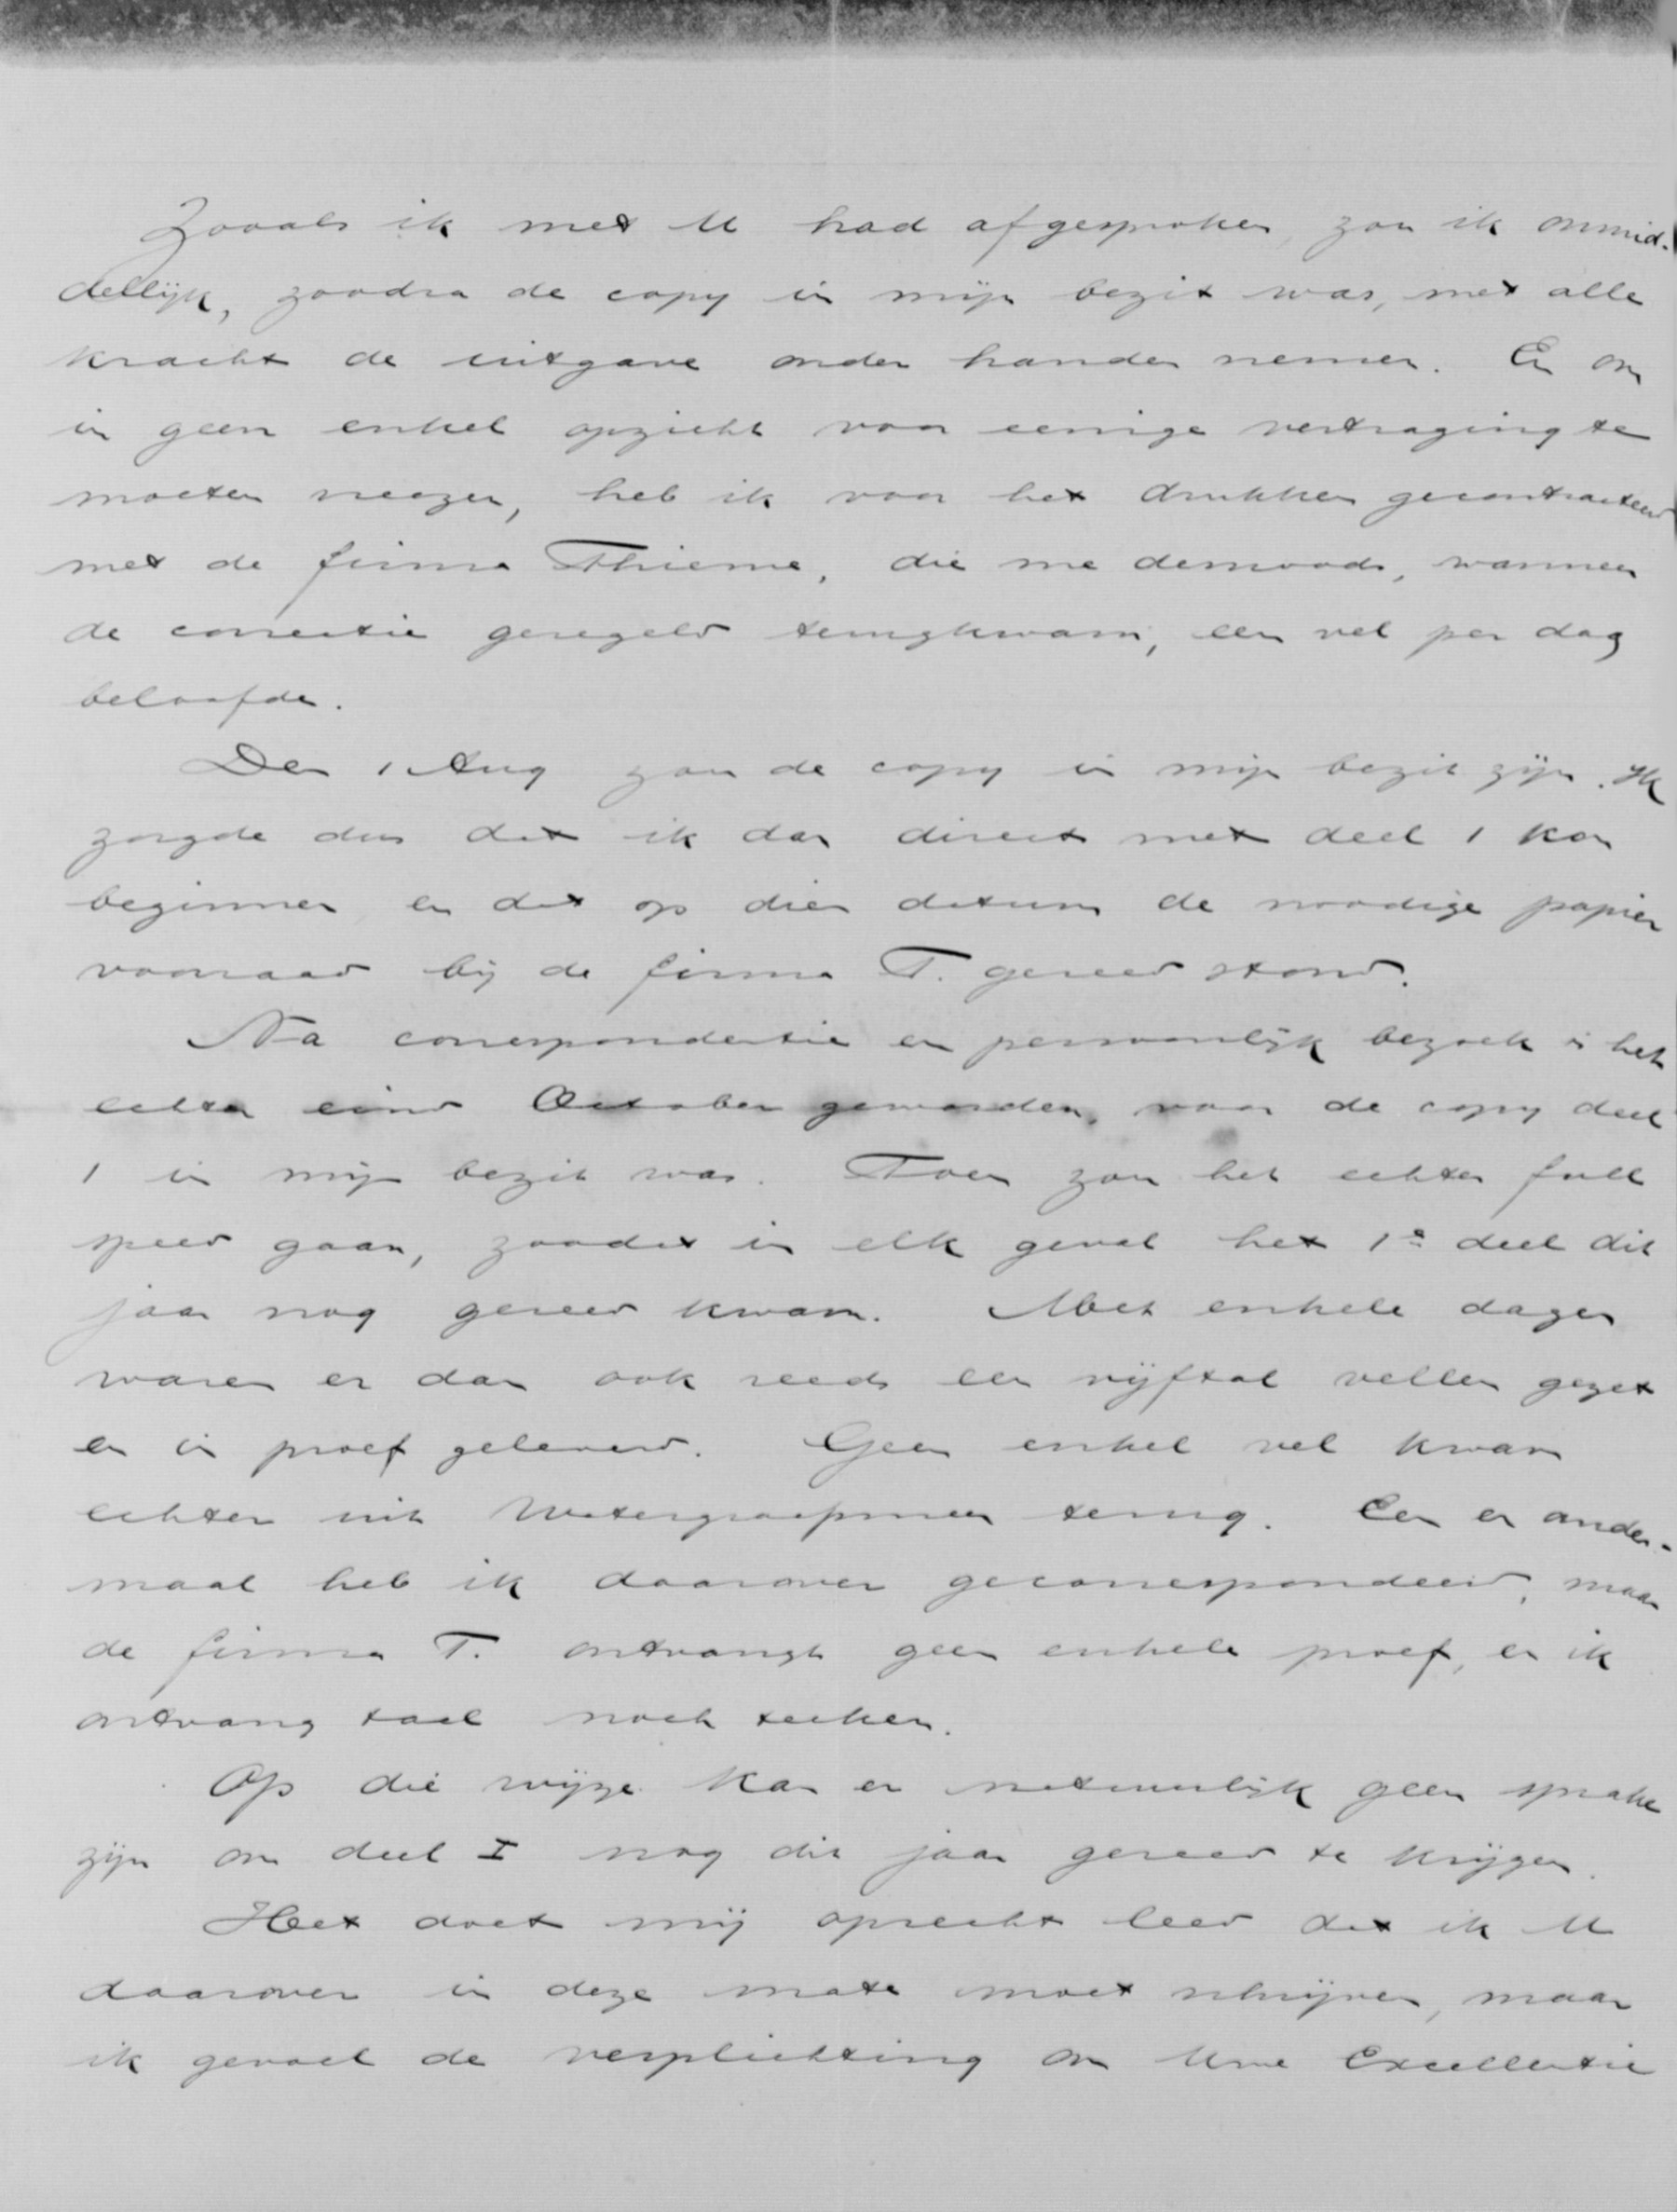 Zooals ik met U had afgesproken, zou ik onmid-
dellijk, zoodra de copy in mijn bezit was, met alle
kracht de uitgave onder handen nemen. En om
in geen enkel opzicht voor eenige vertraging te
moeten vreezen, heb ik voor het drukken gecontracteerd
met de firma Thieme, die me demoods, wanneer
de correctie geregeld terugkwam, een vel per dag
beloofde.
Den 1 Aug zou de copy in mijn bezit zijn. Ik
zorgde dus dat ik dan direct met deel 1 kon
beginnen en dat op dien datum de noodige papier
voorraad bij de firma T. gereed stond.
Na correspondentie en persoonlijk bezoek is het
echter eind October geworden, voor de copy deel
1 in mijn bezit was. Toen zou het echter full
speed gaan, zoodat in elk geval het 1e deel dit
jaar nog gereed kwam. Met enkele dagen
waren er dan ook reeds een vijftal vellen gezet
en in proef geleverd. Geen enkel vel kwam
echter uit Watergraafsmeer terug. Een en ander-
maal heb ik daarover gecorrespondeerd, maar
de firma T. ontvangt geen enkele proef, en ik
ontvang taal noch teeken.
Op die wijze kan er natuurlijk geen sprake
zijn om deel I nog dit jaar gereed te krijgen.
Het doet mij oprecht leed dat ik U
daarover in deze mate moet schrijven, maar
ik gevoel de verplichting om Uwe Excellentie